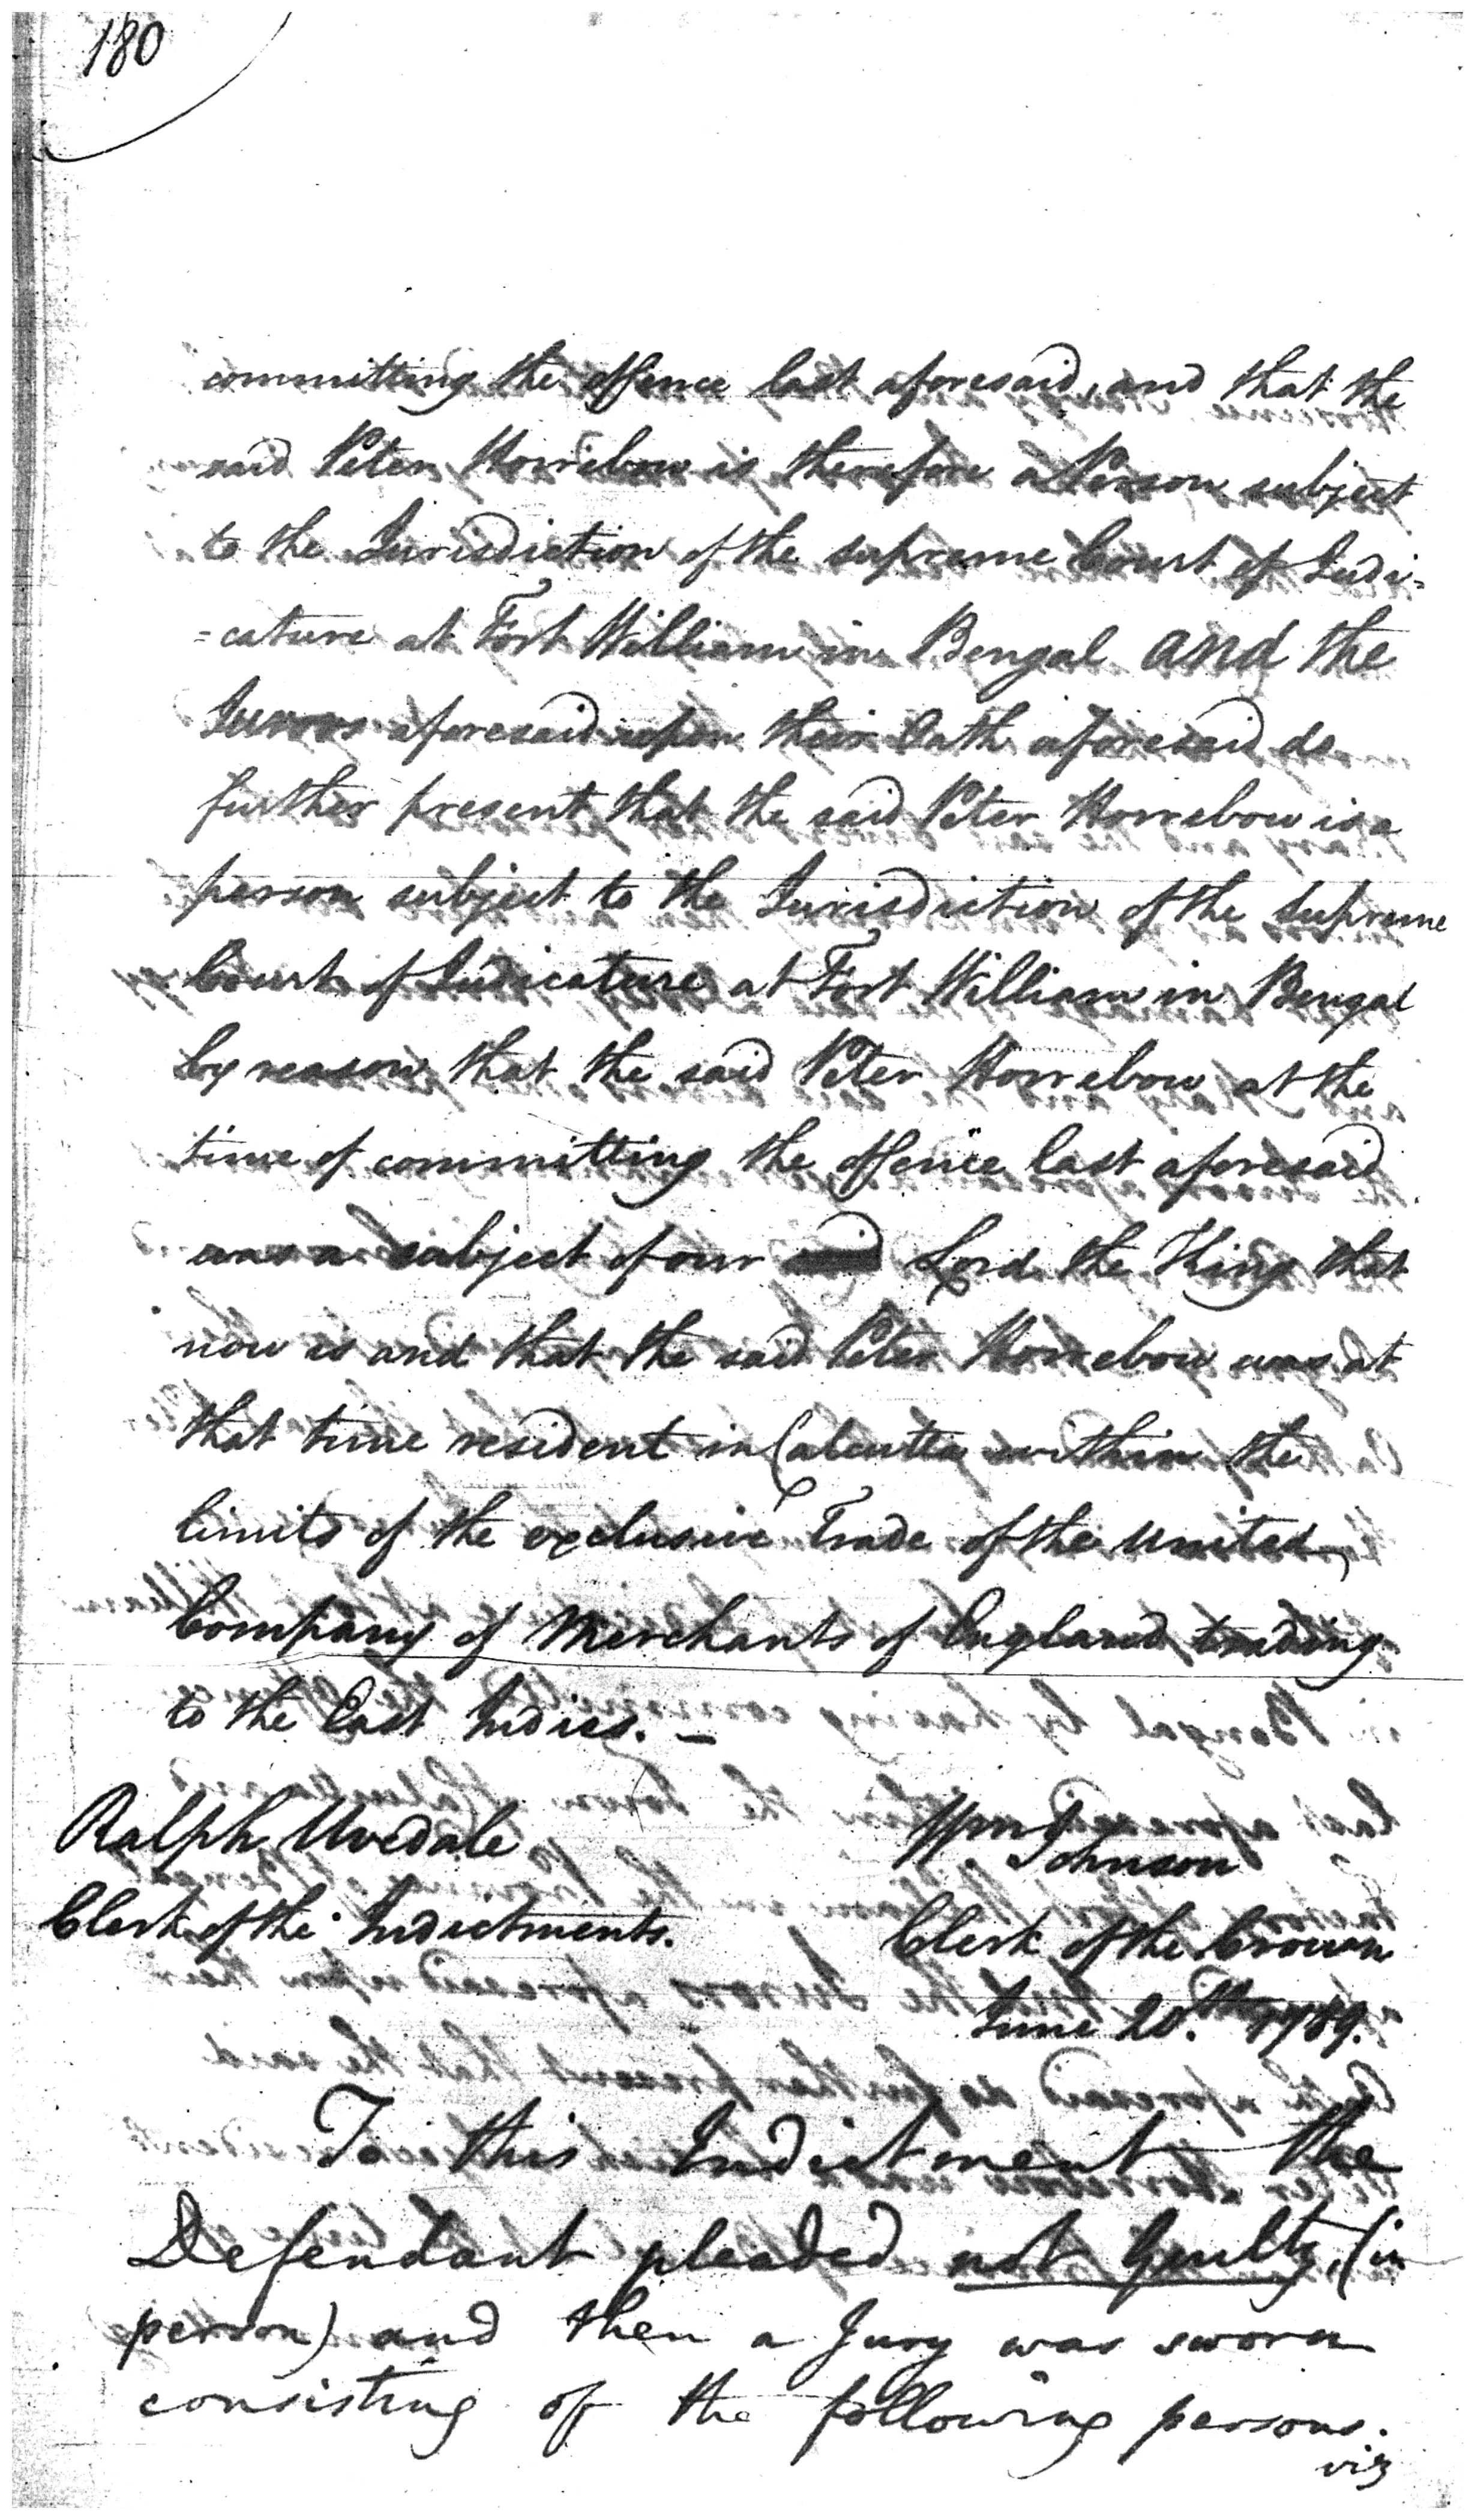 180
committing the offence last aforesaid, and that the
said Peter Horrebow is therefore a Person subject
to the Jurisdiction of the supreme Court of Judi=
=cature at Fort William in Bengal and the
Jurors aforesaid upon their Oath aforesaid do
further present that the said Peter Horrebow is a
person subject to the Jurisdiction of the Supreme
Court of Judicature at Fort William in Bengal
by reason that the said Peter Horrebow at the
time of committing the offence last aforesaid
was a subject of our Lord the King that
now is and that the said Peter Horrebow was at
that time resident in Calcutta within the
limits of the exclusive Trade of the United
Company of Merchants of England trading
to the East Indies. –
Ralph Uvedale
Clerk of the Indictments.
Wm Johnson
Clerk of the Crown
June 20th 1789.
To this Indictment the
Defendant pleaded not Guilty, (in
person) and then a Jury was sworn
consisting of the following persons.
viz